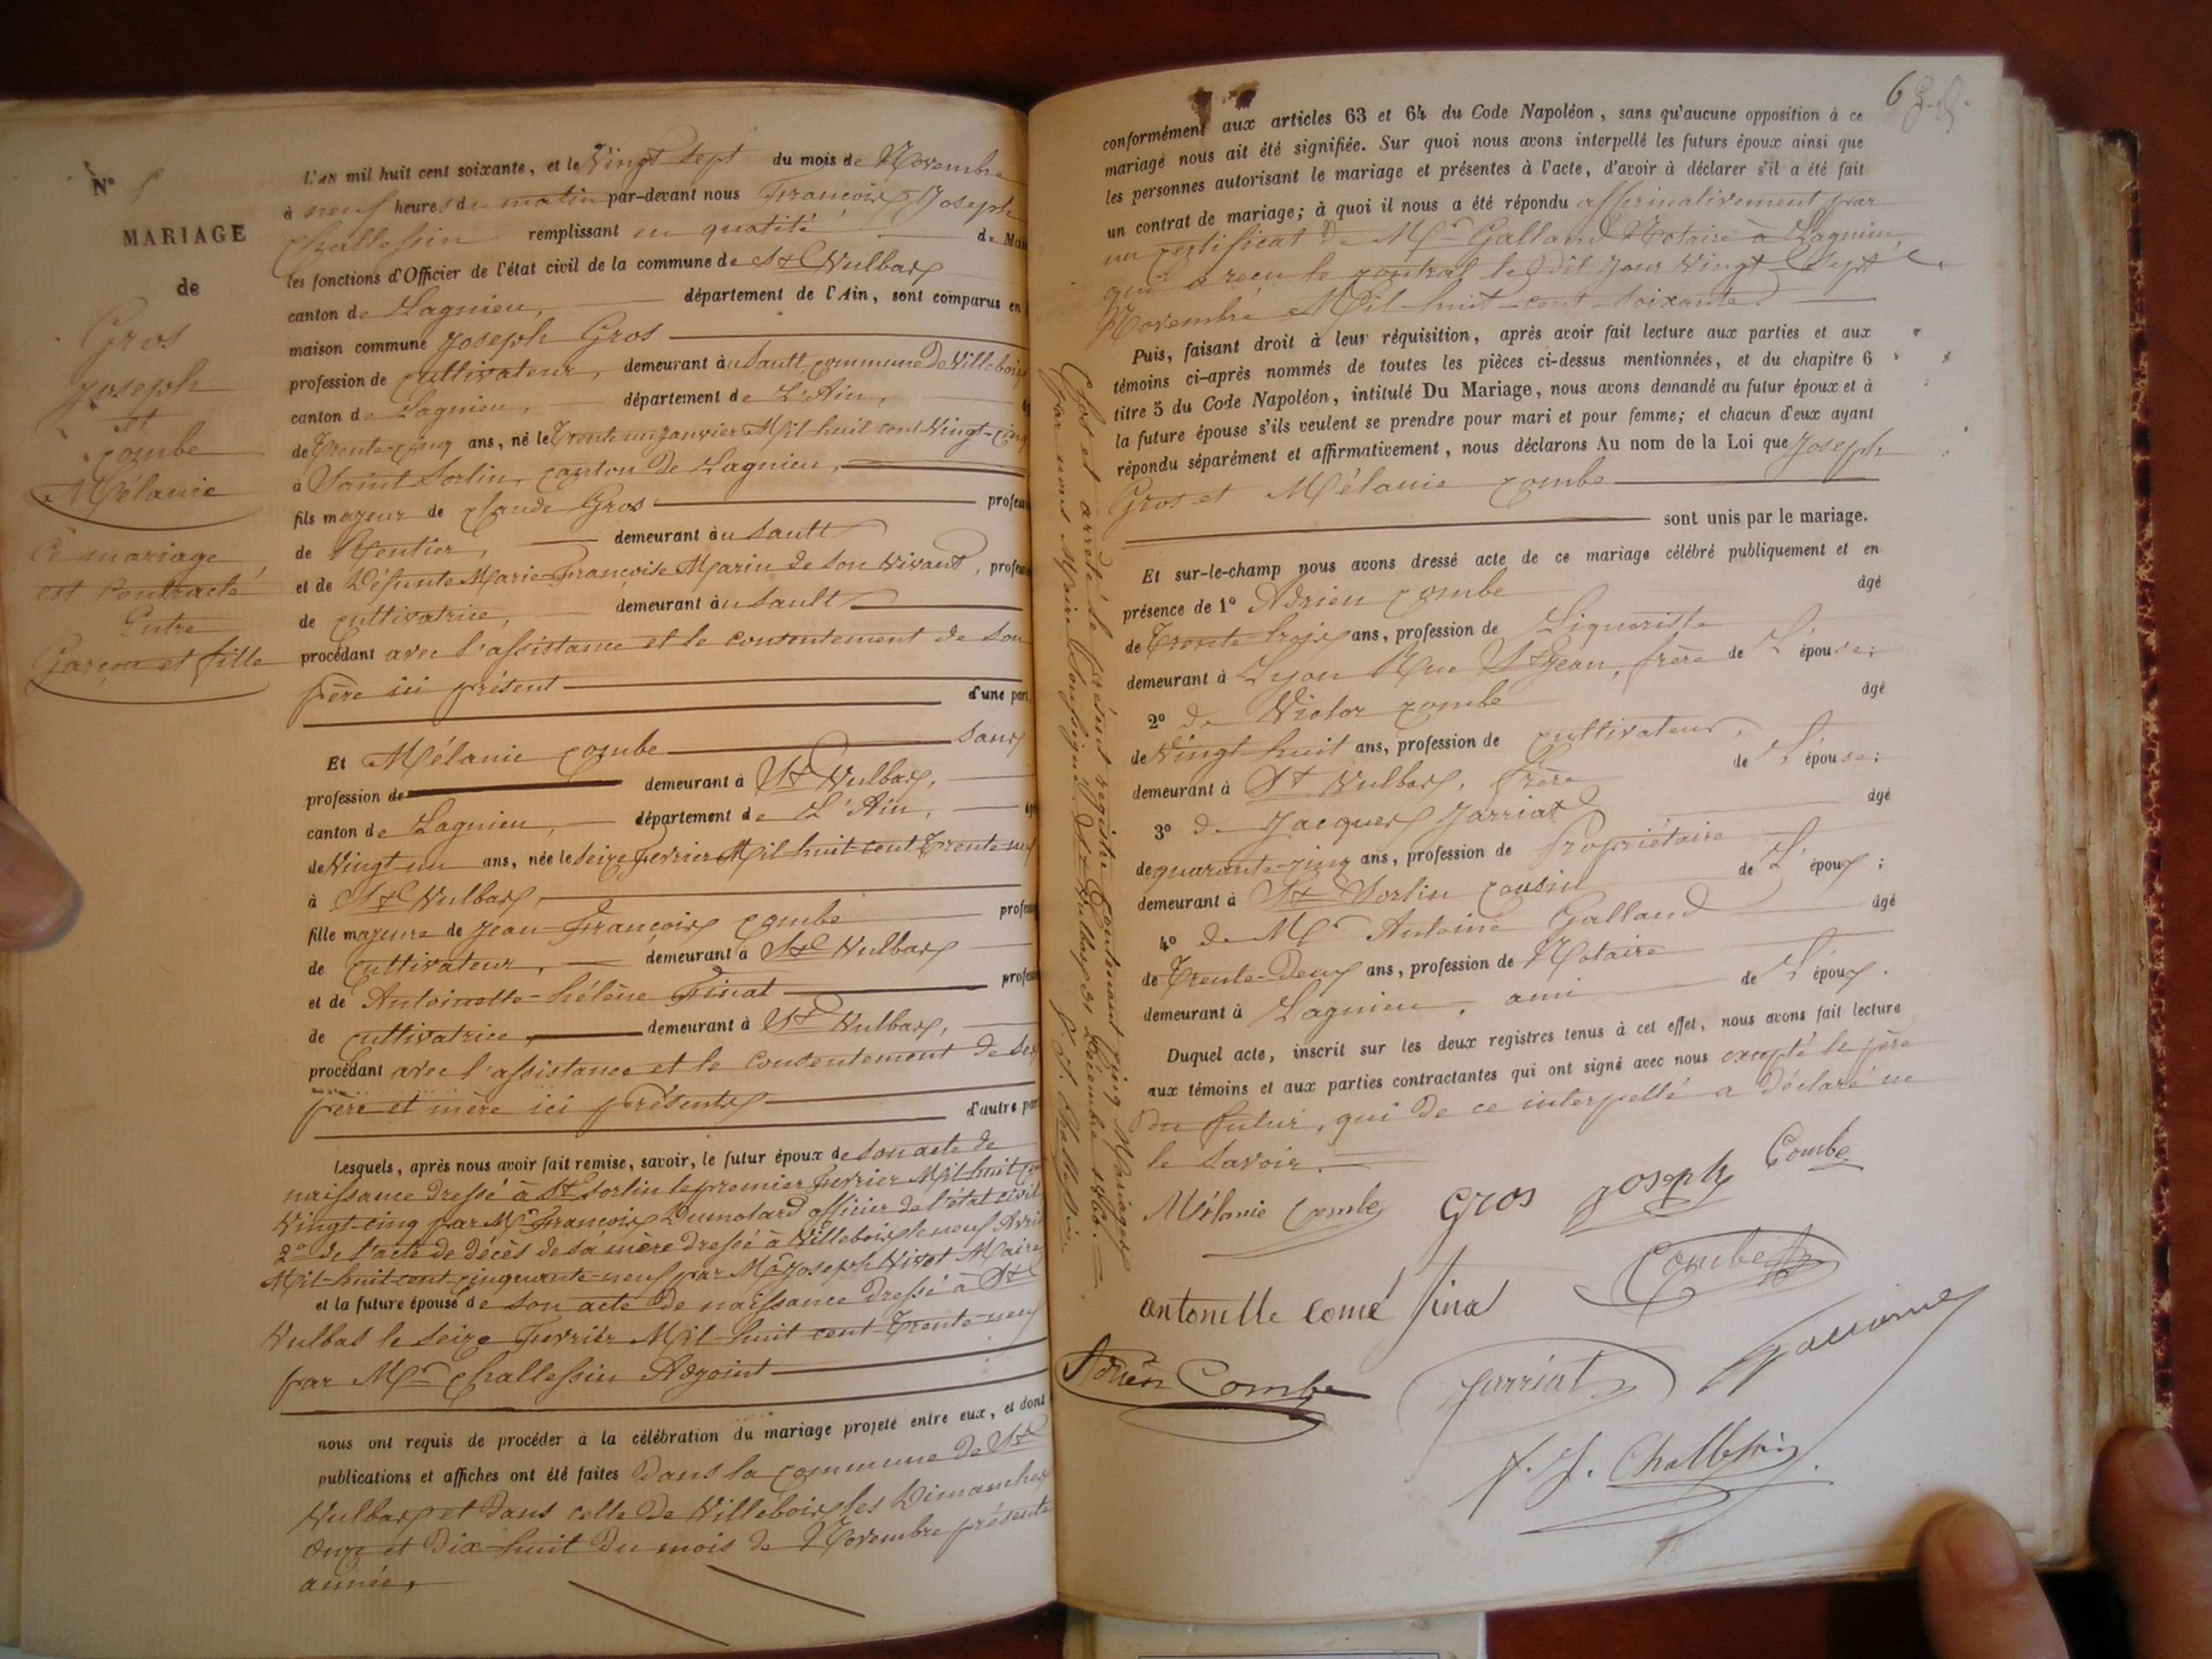 N° 5
MARIAGE
de
Gros
Joseph
et
Combe
Mélanie
Ce mariage
est contracté
Entre
Garçon et fille
L'AN mil huit cent soixante, et le Vingt sept du mois de Novembre
à neuf heures du matin par-devant nous François Joseph
Challessin remplissant en qualité de Mai
les fonctions d'Officier de l'état civil de la commune de St Vulbas
canton de Lagnieu, département de l'Ain, sont comparus en
maison commune Joseph Gros
profession de Cultivateur, demeurant au Sault, commune de Villebois
canton de Lagnieu, département de L'Ain,
de Trente-cinq ans, né le trente un Janvier Mil huit cent Vingt-cinq
à Saint Sorlin, canton de Lagnieu,
fils majeur de Claude Gros profess
de Rentier, demeurant au Sault
et de Défunte Marie-Françoise Marin de son Vivant, profess
de Cultivatrice, demeurant au Sault
procédant avec l'assistance et le consentement de son
père ici présent d'une part,
Et Mélanie Combe Sans
profession de demeurant à St Vulbas,
canton de Lagnieu, département de L'Ain, âgé
de Vingt-un ans, née le Seize Fevrier Mil huit cent Trente neuf
à St Vulbas,
fille majeure de Jean-François Combe profess
de Cultivateur, demeurant à St Vulbas
et de Antoinette-hélène Finat profess
de Cultivatrice demeurant à St Vulbas,
procédant avec l'assistance et le consentement de ses
père et mère ici présents d'autre part
Lesquels, après nous avoir fait remise, savoir, le futur époux de son acte de
naissance dressé à St Sorlin le premier Fevrier Mil huit cent
Vingt-cinq par Mr François Dumolard officier de l'état civil
2° de l'acte de décès de sa mère dressé à Villebois le neuf Avril
Mil-huit cent-cinquante-neuf par Mr Joseph Vivet Maire
et la future épouse de son acte de naissance dressé à St
Vulbas le Seize Fevrier Mil-huit cent-Trente-neuf
par Mr Challessin Adjoint
nous ont requis de procéder à la célébration du mariage projeté entre eux, et dont
publications et affiches ont été faites dans la commune de St
Vulbas et dans celle de Villebois les Dimanches
Onze et Dix-huit du mois de Novembre présente
année,
6
conformément aux articles 63 et 64 du Code Napoléon, sans qu'aucune opposition à ce
mariage nous ait été signifiée. Sur quoi nous avons interpellé les futurs époux ainsi que
les personnes autorisant le mariage et présentes à l'acte, d'avoir à déclarer s'il a été fait
un contrat de mariage; à quoi il nous a été répondu affirmativement par
un certificat de Mr Galland Notaire à Lagnieu,
qui a reçu le contrat le dit jour Vingt-Sept
Novembre Mil-huit-cent-Soixante.
Puis, faisant droit à leur réquisition, après avoir fait lecture aux parties et aux
témoins ci-après nommés de toutes les pièces ci-dessus mentionnées, et du chapitre 6
titre 5 du Code Napoléon, intitulé Du Mariage, nous avons demandé au futur époux et à
la future épouse s'ils veulent se prendre pour mari et pour femme; et chacun d'eux ayant
répondu séparément et affirmativement, nous déclarons Au nom de la Loi que Joseph
Gros et Mélanie Combe
sont unis par le mariage.
Et sur-le-champ nous avons dressé acte de ce mariage célébré publiquement et en
présence de 1° Adrien Combe âgé
de Trente-trois ans, profession de Liquoriste
demeurant à Lyon Rue St Jean, frère de L'épouse;
2° de Victor Combe âgé
de Vingt-huit ans, profession de Cultivateur,
demeurant à St Vulbas, frère de L'épouse;
3° de Jacques Jarriat âgé
de quarante-cinq ans, profession de Propriétaire
demeurant à St Sorlin cousin de L'époux;
4° de Mr Antoine Galland âgé
de Trente-Deux ans, profession de Notaire
demeurant à Lagnieu, ami de L'époux.
Duquel acte, inscrit sur les deux registres tenus à cet effet, nous avons fait lecture
aux témoins et aux parties contractantes qui ont signé avec nous excepté le père
du futur, qui de ce interpellé a déclaré ne
le savoir.
Mélanie Combe Gros Joseph Combe
antonette come finat Combe
Adrien Combe Jarriat
F. J. Challessin
Clos et arreté le présent registre contenant cinq Mariages
par nous Maire Soussigné. St Vulbas 31 Décembre 1860.
F. J. Challessin